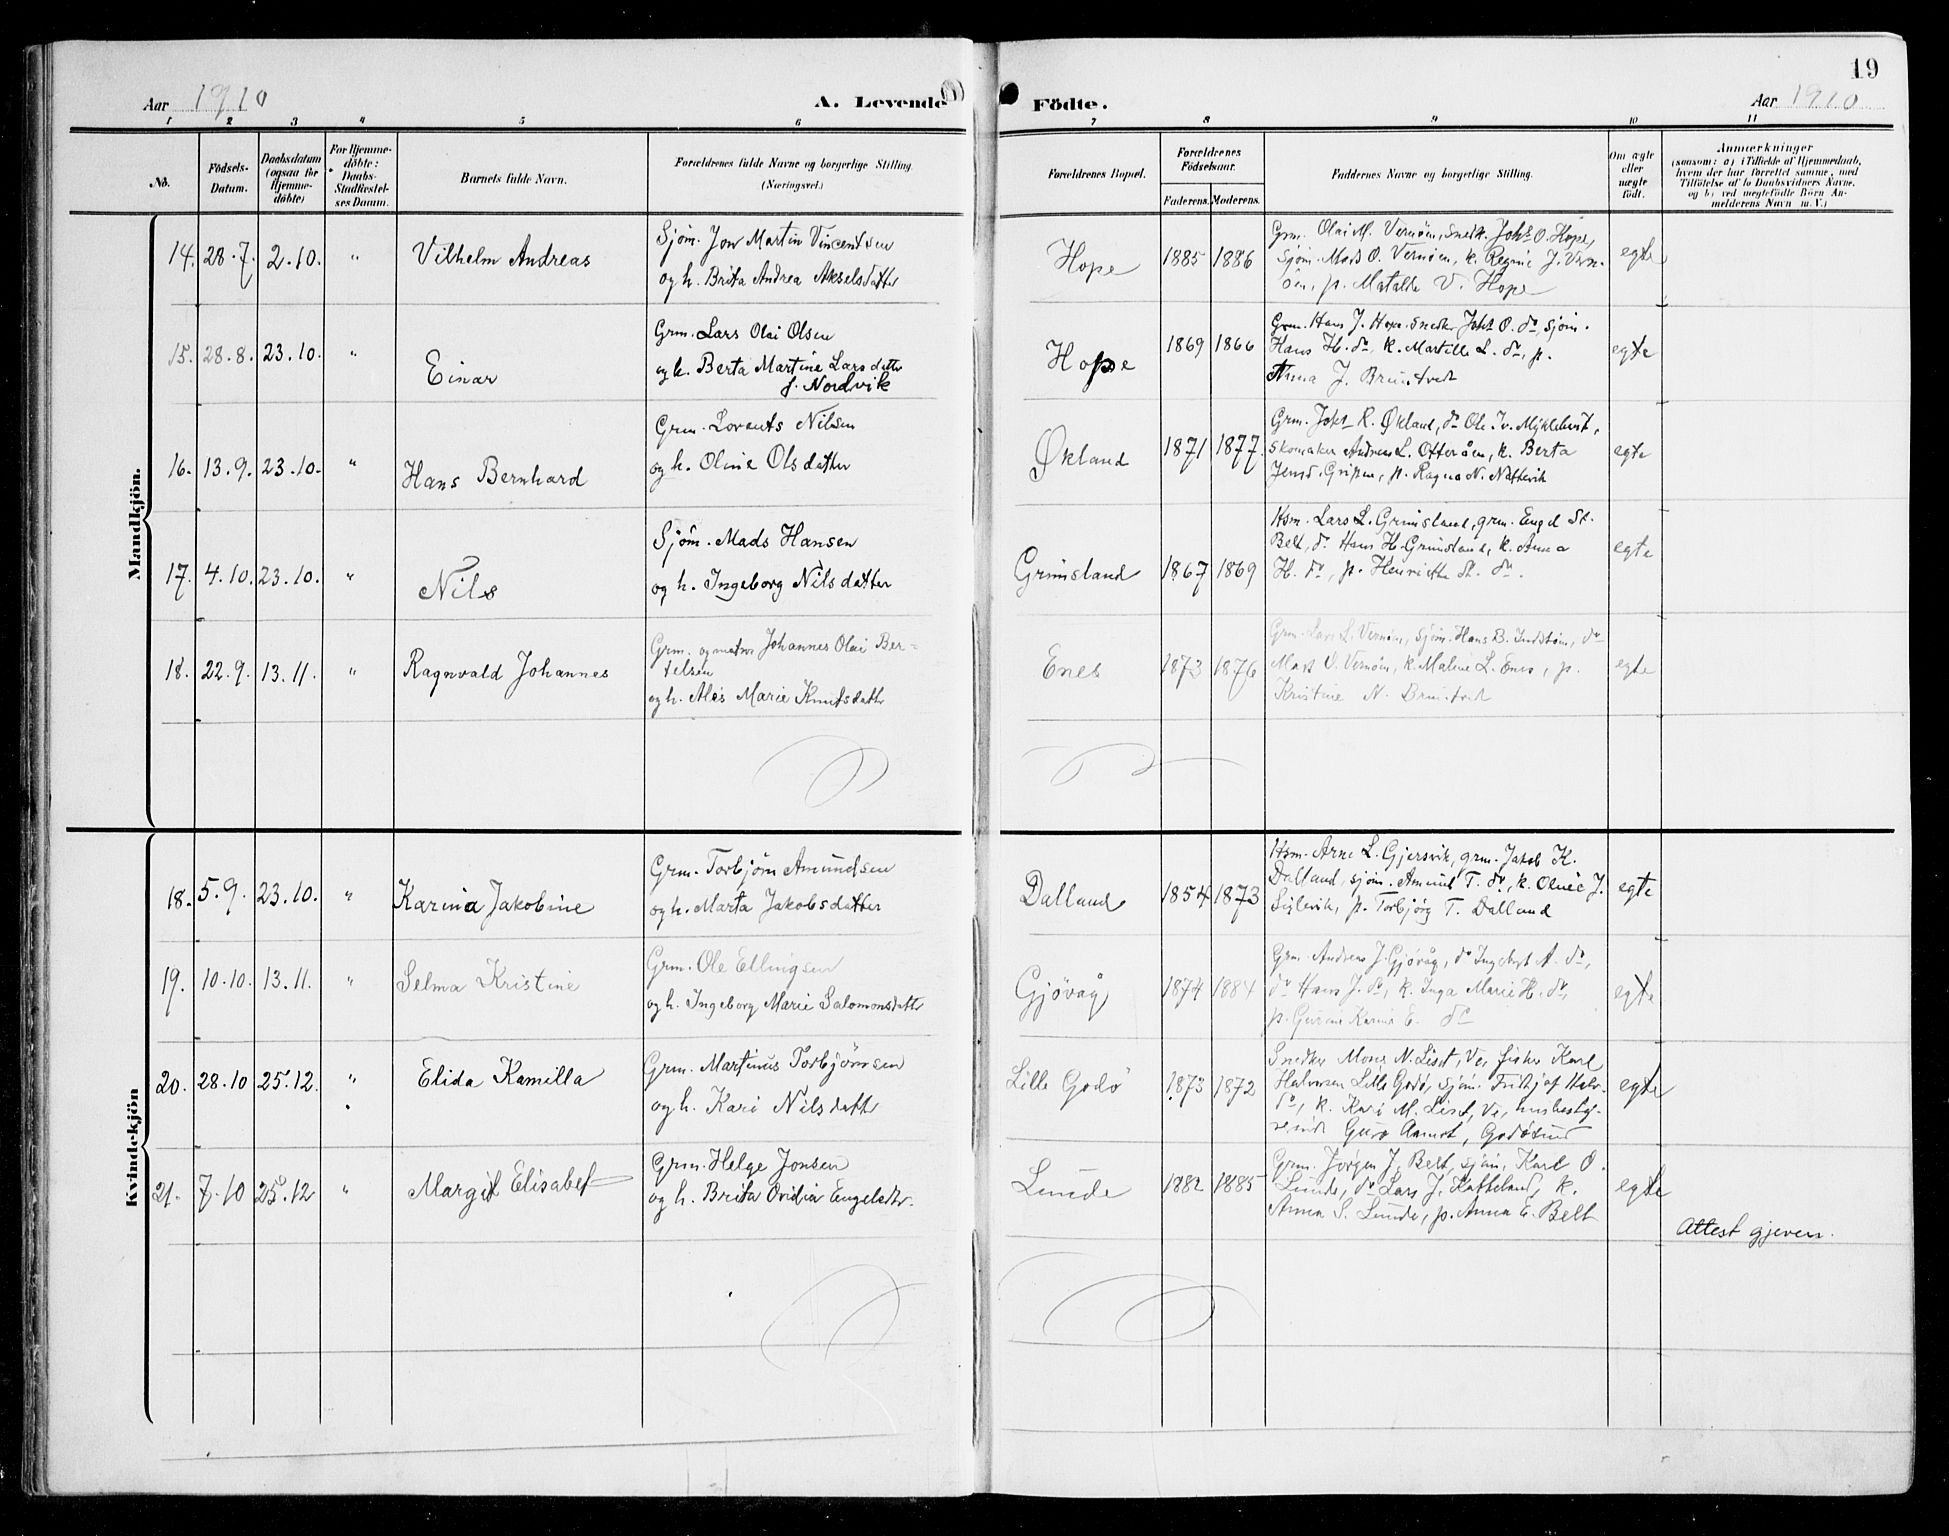 19
Aar 1910
A. Levende Födte.
Aar 1910
1 2 3 4 5 6 7 8 9 10 11
No.
Födsels-
Datum.
Daabsdatum
(ogsaa for
Hjemme-
döbte)
For Hjemme-
döbte:
Daabs-
Stadfæstel-
ses Datum.
Barnets fulde Navn.
Forældrenes fulde Navne og borgerlige Stilling.
(Næringsvei.)
Forældrenes Bopæl.
Forældrenes
Födselsaar.
Faderens. Moderens.
Faddernes Navne og borgerlige Stilling.
Om ægte
eller
uægte
födt.
Anmærkninger
(saasom: a) i Tilfælde af Hjemmedaab,
hvem der har forrettet samme, med
Tilföielse af to Daabsvidners Navne,
og b) ved uægtefödte Börn An-
melderens Navn m. V.)
Mandkjön.
14. 28.7. 2.10. " Vilhelm Andreas
Sjöm. Jon Martin Vincentsen
og h. Brita Andrea Akselsdatter
Hope 1885 1886
Grm. Olai M. Vernöen, snedk. Johs O. Hope,
Sjöm. Mads O. Vernöen, k. Regine J. Vern-
öen, p. Matalde V. Hope
egte
15. 28.8. 23.10. " Einar
Grm. Lars Olai Olsen
og h. Berta Martine Larsdatter
f. Nordvik
Hope 1869 1866
Grm. Hans J. Hope, snedker Johs O. do, sjöm.
Hans H. do, k. Martille L. do, p.
Anna J. Bruntveit
egte
16. 13.9. 23.10. " Hans Bernhard
Grm. Lorents Nilsen
og h. Oline Olsdatter
Økland 1871 1877
Grm. Johs R. Økland, do Ole Iv. Myklebust,
skomaker Andreas L. Otteröen, k. Berta
p. Ragna N. Nattevik
egte
17. 4.10. 23.10. " Nils
Sjöm. Mads Hansen
og h. Ingeborg Nilsdatter
Grimsland 1867 1869
Hsm. Lars L. Grimsland, grm. Engel St.
Belt, do Hans H. Grimsland, k. Anna
H. do, p. Henriette St. do.
egte
18. 22.9. 13.11. " Ragnvald Johannes
Grm. Johannes Olai Ber-
telsen
og h. Ales Marie Knutsdatter
Enes 1873 1876
Grm. Lars L. Vernöen, sjöm. Hans B. do
Mads O. Vernöen, k. Maline L. Enes, p.
Kristine N. Bruntveit
egte
Kvindekjön
18. 5.9. 23.10. " Karina Jakobine
Grm. Torbjörn Amundsen
og h. Marta Jakobsdatter
Dalland 1854 1873
Hsm. Arne L. Gjersvik, grm. Jakob K.
Dalland, sjöm. Amund T. do, k. Oline J.
p. Torbjörg T. Dalland
egte
19. 10.10. 13.11. " Selma Kristine
Grm. Ole Ellingsen
og h. Ingeborg Marie Salomonsdatter
Gjövåg 1874 1884
Grm. Andreas J. Gjövåg, do Ingebrgt A. do,
do Hans J. do, k. Inga Marie H. do,
p. Gurine Karine E. do
egte
20. 28.10 25.12. " Elida Kamilla
Grm. Martinus Torbjörnsen
og h. Kari Nilsdatter
Lille Godö 1873 1872
Snedker Mons N. List, Ve, fisker Karl
Halvorsen Lille Godö, sjöm. Fritjof Halv.
do, k. Kari M. List, Ve, husbesty-
rerinde Guro Aamot, Godösund
egte
21. 7.10 25.12 " Margit Elisabet
Grm. Helge Jonsen
og h. Brita Ovidia Engelsdtr.
Lunde 1882 1885
Grm. Jörgen J. Belt, sjöm. Karl O.
Lunde, do Lars J. Katteland, k.
Anna S. Lunde, p. Anna E. Belt
egte
Attest gjeven.